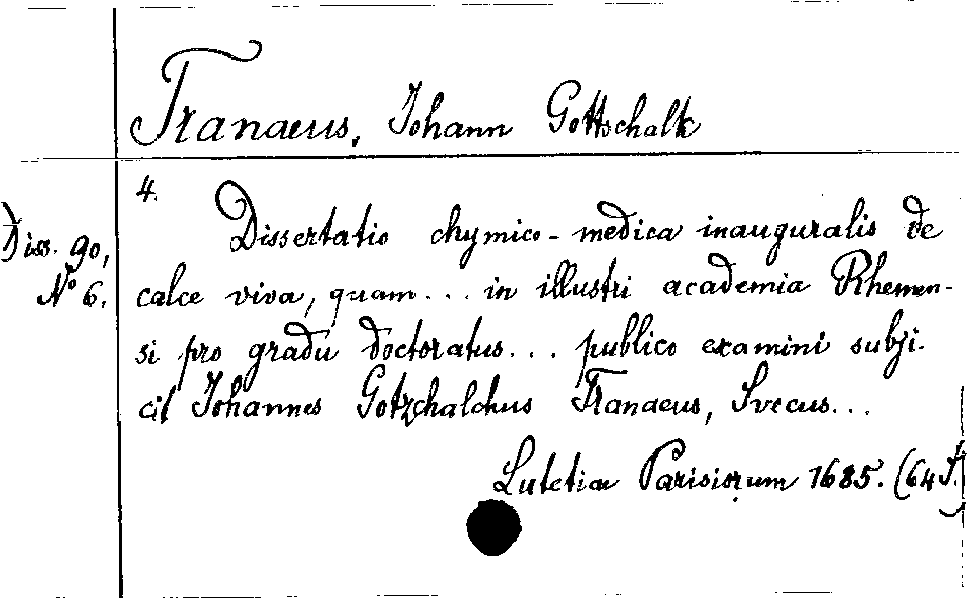 Tranaeus, Johann Gottschalk
4.
Diss. 90,
N° 6.
Dissertatio chymico-medica inauguralis de
calce viva, quam... in illustri academia Rhemen-
si pro gradu doctoratus... publico examini subji-
cit Johannes Gotzchalchus Tranaeus, Svecus...
Lutetiae Parisiorum 1685. (64 S.)